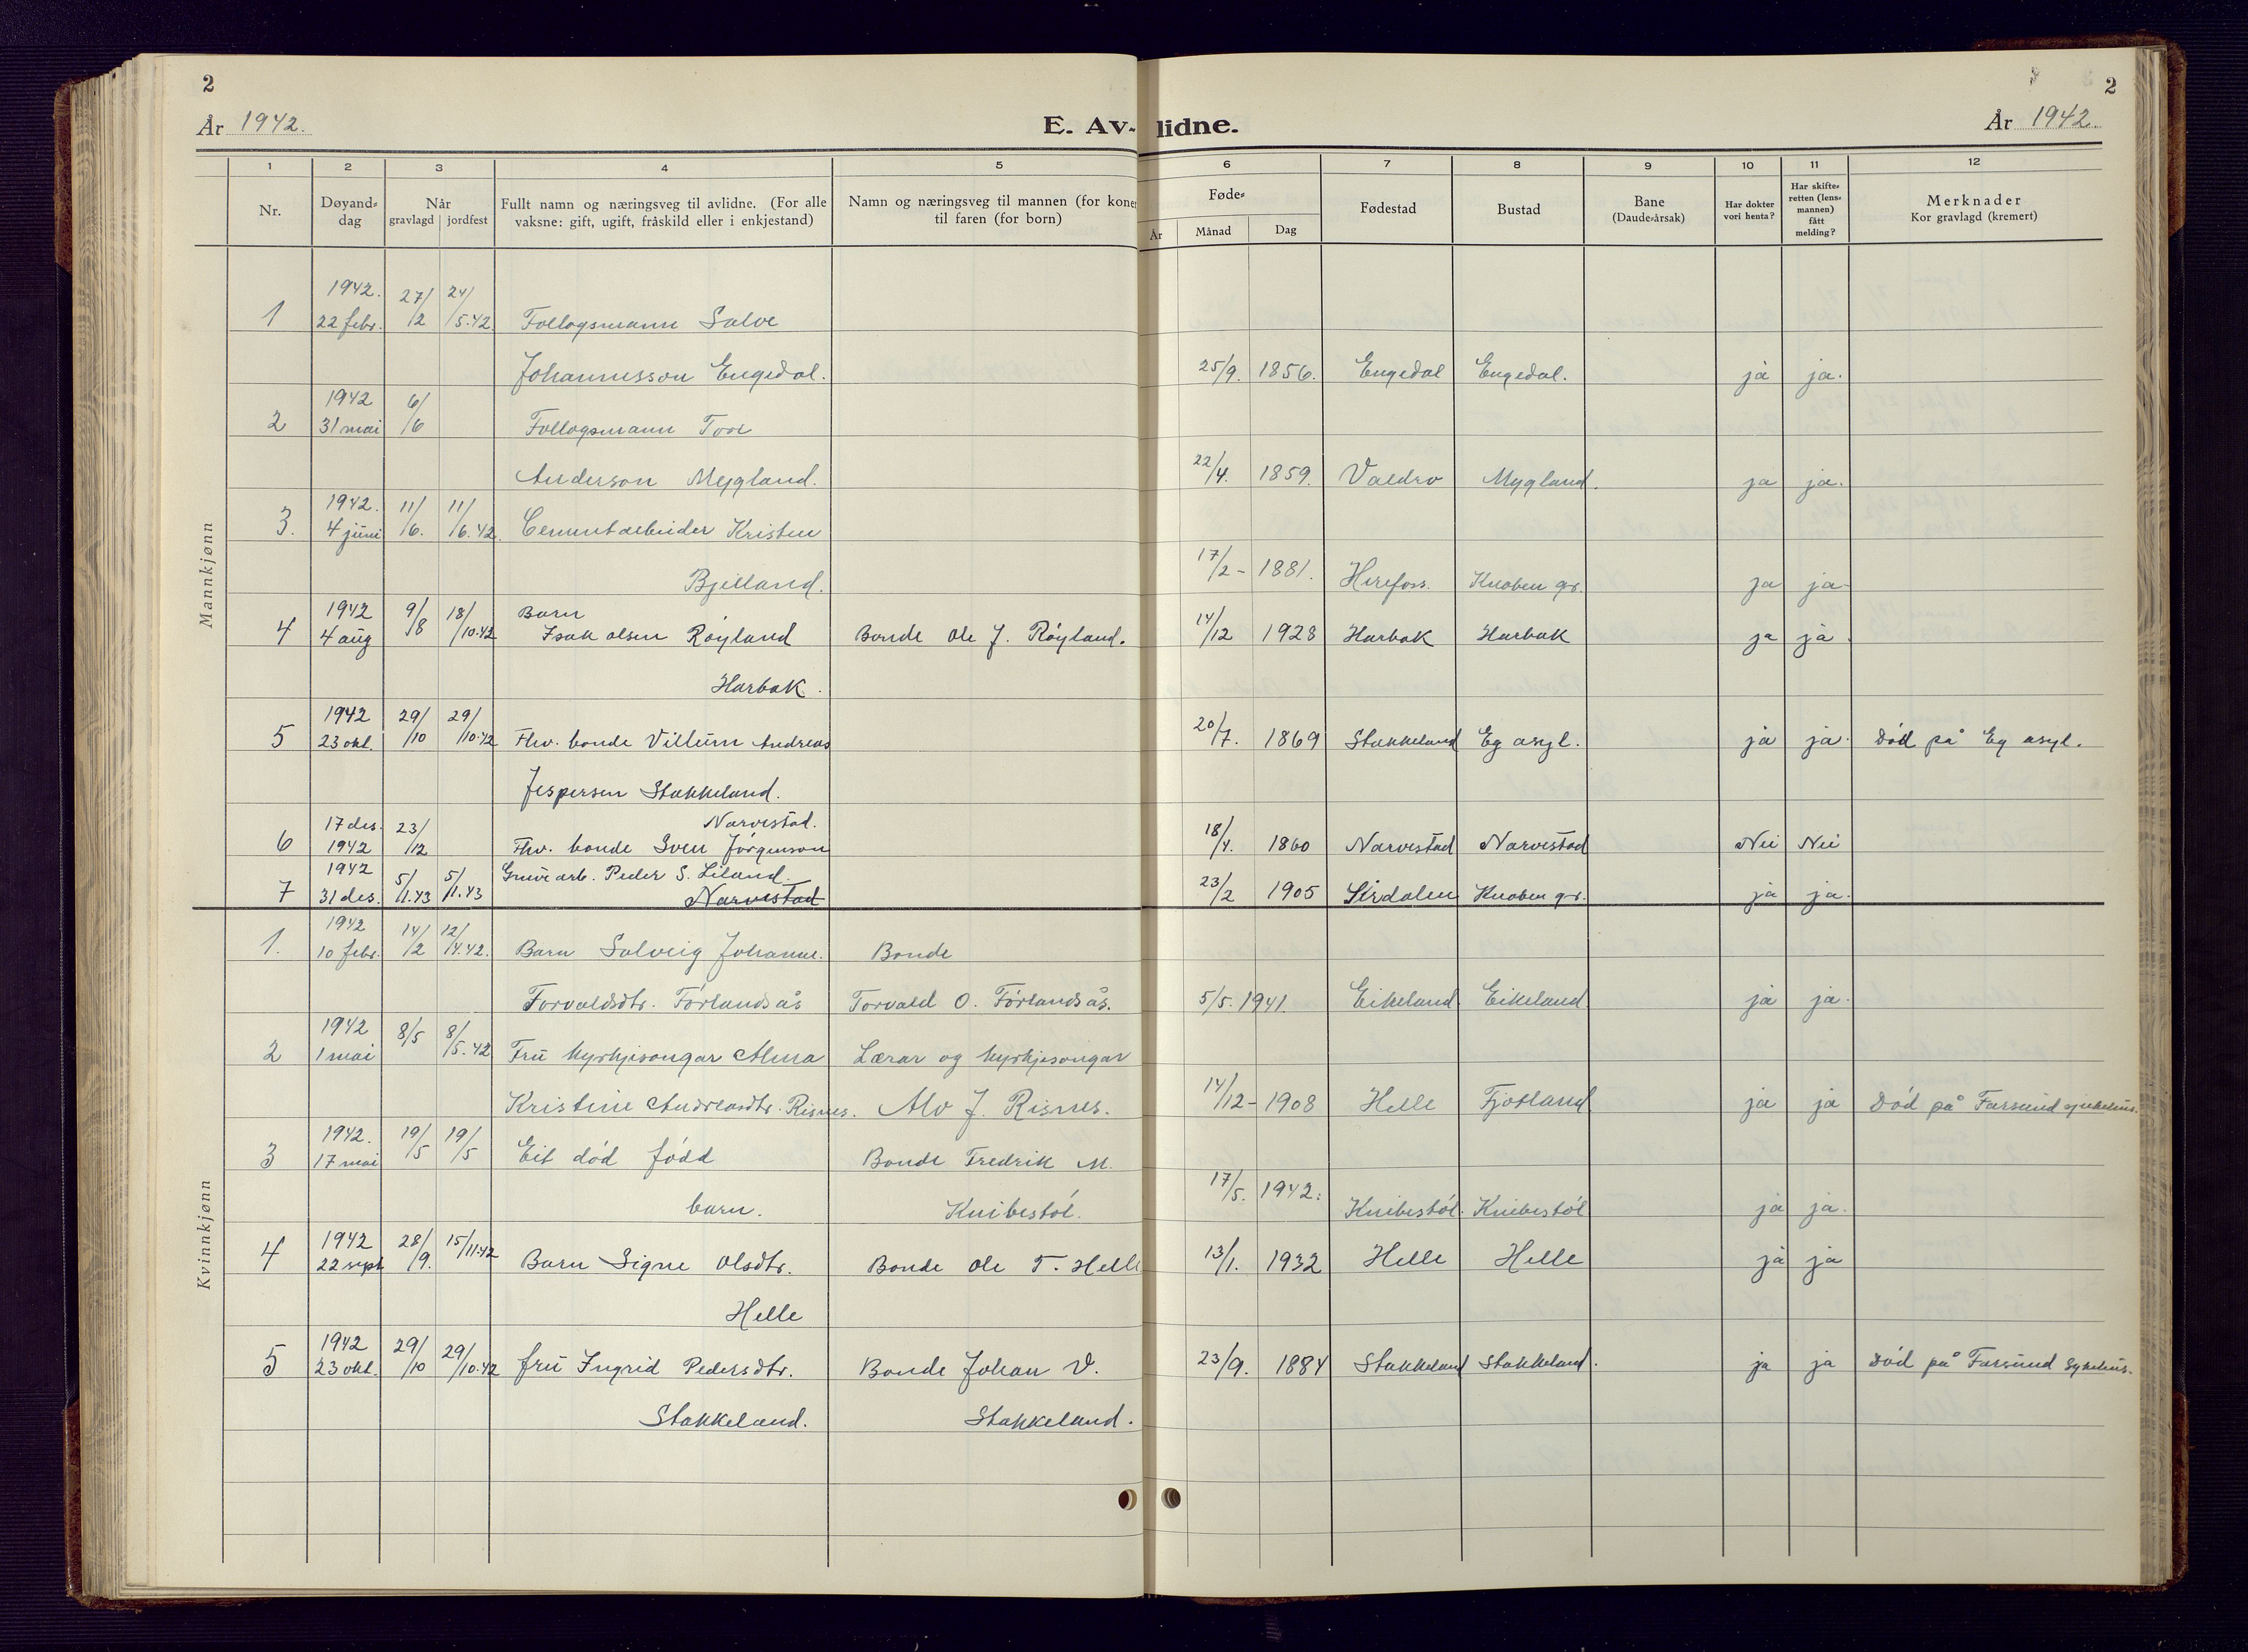 2
År 1942.
E. Av-lidne.
2
År 1942.
1 2 3 4 5 6 7 8 9 10 11 12
Nr.
Døyand-dag
Når
gravlagd | jordfest
Fullt namn og næringsveg til avlidne. (For alle
vaksne: gift, ugift, fråskild eller i enkjestand)
Namn og næringsveg til mannen (for kone
til faren (for born)
Føde-
År Månad Dag
Fødestad
Bustad
Bane
(Daude-årsak)
Har dokter
vori henta?
Har skifte-
retten (lens-
mannen)
fått
melding?
Merknader
Kor gravlagd (kremert)
Mannkjønn
1942. 27/2 24/5.42
1 22 febr. Follogsmann Salve
Johannesson Engedal. 25/9. 1856. Engedal Engedal. ja ja.
1942 6/6
2 31 mai Follogsmann Tore
Anderson Mygland. 22/4. 1859. Mygland. ja ja.
1942. 11/6. 11/6.42
3. 4 juni Cementarbeider Kristen
Bjelland. 17/2- 1881. Herefoss. Knaben gr. ja ja
1942 9/8 18/10.42 Barn
4 4 aug Isak olsen Røyland Bonde Ole J. Røyland. 14/12 1928 Harbak Harbak ja ja
Harbak.
1942 29/10 29/10.42
5 23 okt. Fhv. bonde Villum Andreas 20/7. 1869 Stakkeland Eg asyl. ja ja. Død på Eg asyl.
Jespersen Stakkeland.
17 des. 23/12 Narvestad.
6 1942 Fhv. bonde Sven Jørgenson 18/4. 1860 Narvestad Narvestad Nei Nei
1942 5/1.43 5/1.43 Gruvearb. Peder S. Liland.
7 31 des. Narvestad 23/2 1905 Sirdalen Knaben gr. ja ja.
Kvinnkjønn
1942 14/2 12/4.42.
1. 10 febr. Barn Solveig Johanne. Bonde
Torvaldsdtr. Førlandsås Torvald O. Førlandsås. 5/5. 1941. Eikeland Eikeland ja ja.
1942 8/5 8/5.42
2 1 mai Fru kyrkjesongar Alma Lærar og kyrkjesongar
Kristine Andreasdtr. Risnes. Alv J. Risnes. 14/12- 1908 Helle Fjotland ja ja Død på Farsund sjukehus.
1942. 19/5 19/5
3 17 mai Eit død fødd Bonde Fredrik M.
barn. Knibestøl. 17/5. 1942. Knibestøl. Knibestøl ja ja.
1942 28/9. 15/11.42
4 22 sept Barn Signe Olsdtr. Bonde Ole T. Helle 13/1. 1932 Helle Helle ja ja
Helle
1942 29/10 29/10.42
5 23 okt. fru Ingrid Pedersdtr. Bonde Johan V. 23/9. 1884 Stakkeland Stakkeland. ja ja Død på Farsund Sykehus.
Stakkeland. Stakkeland.